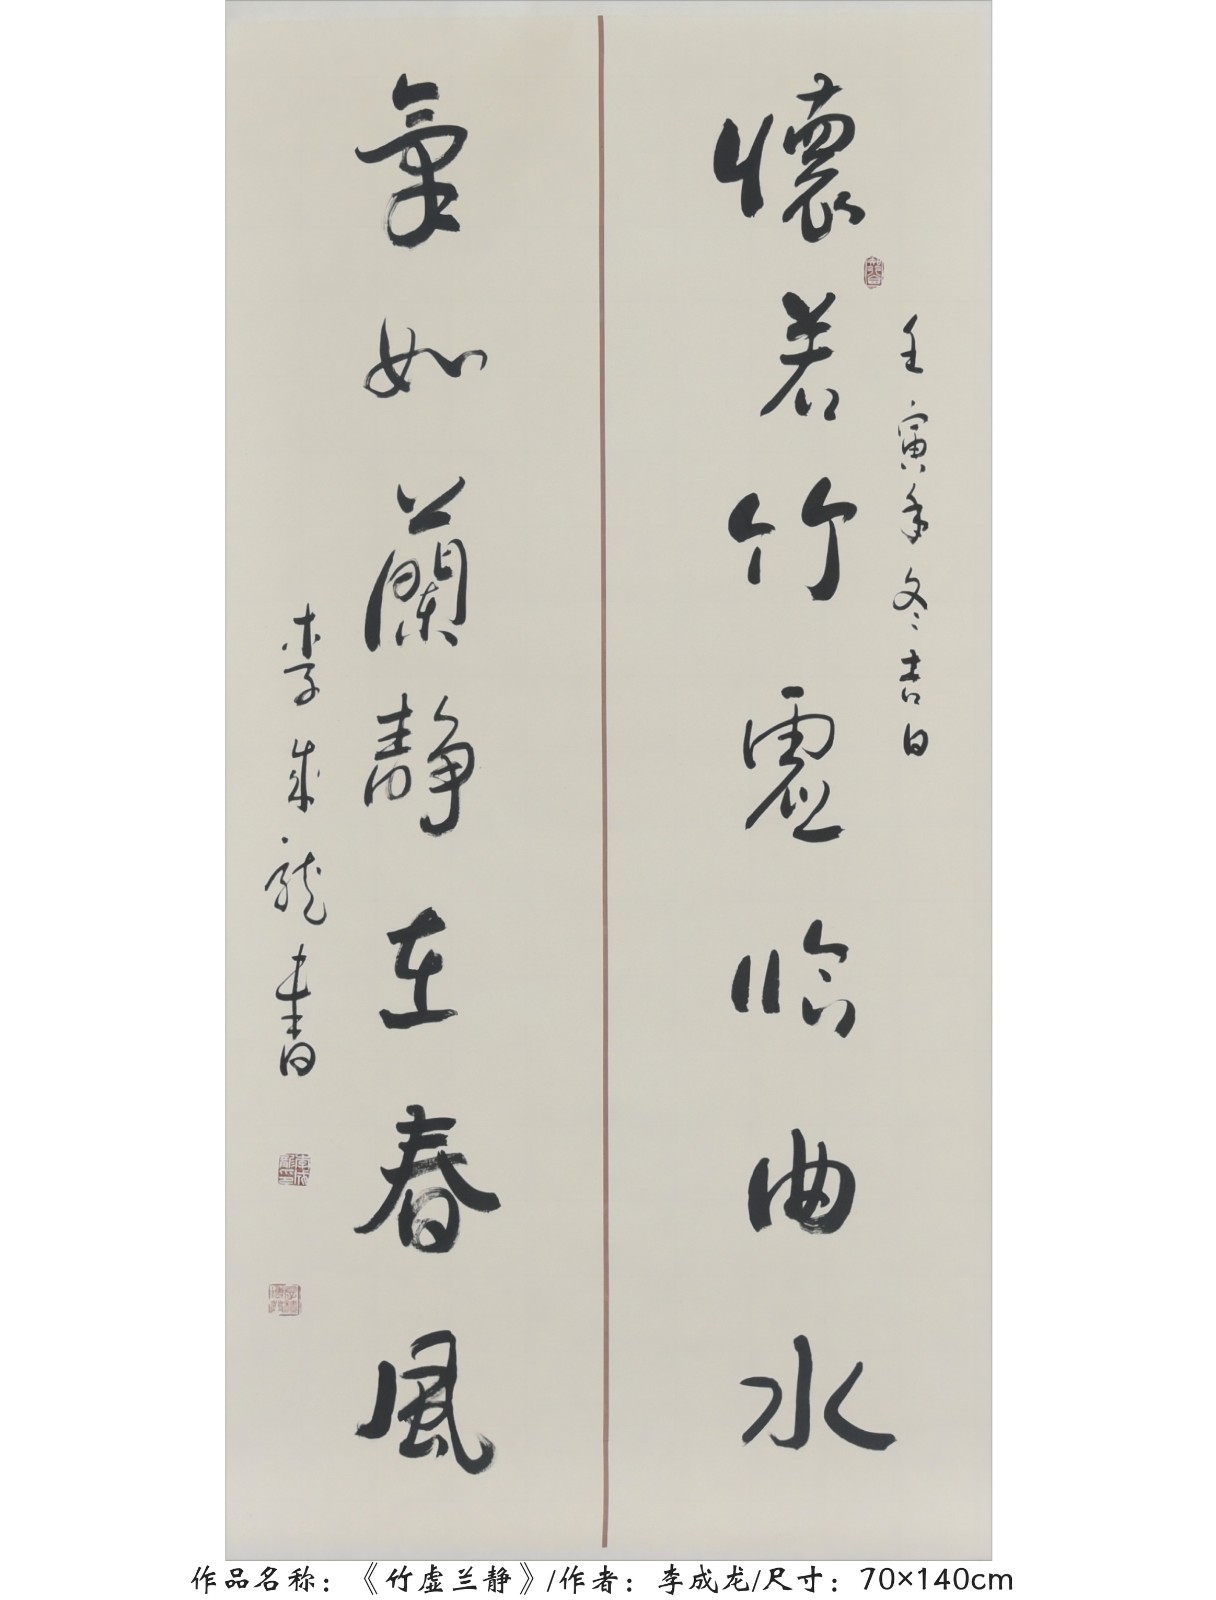 懷若竹虛臨曲水
壬寅年冬吉日
氣如蘭靜在春風
李成龍書
作品名称：《竹虚兰静》/作者：李成龙/尺寸：70×140cm